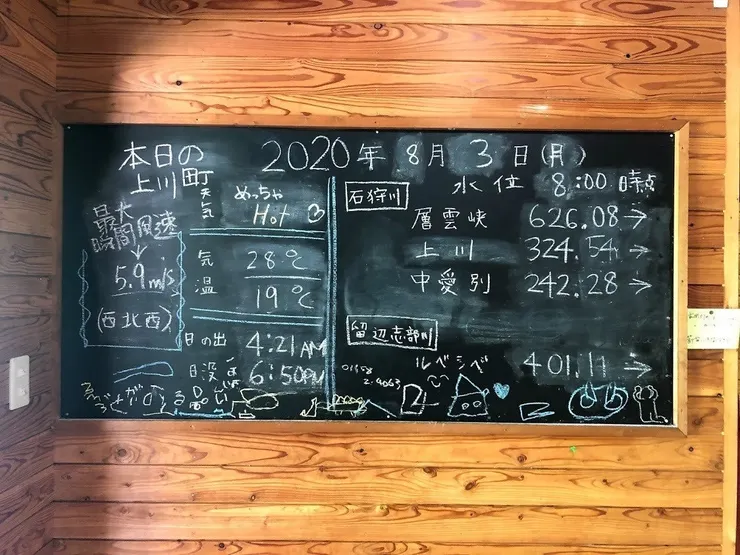 本日の
上川町
2020年 8月 3日(月)
天気
めっちゃ
Hot
最大
瞬間風速
5.9m/s
(西北西)
気温
28℃
19℃
日の出 4:21AM
日没 6:50PM
水位 8:00 時点
石狩川
層雲峡 626.08→
上川 324.54→
中愛別 242.28→
留辺志部川
ルベシベ
401.11→